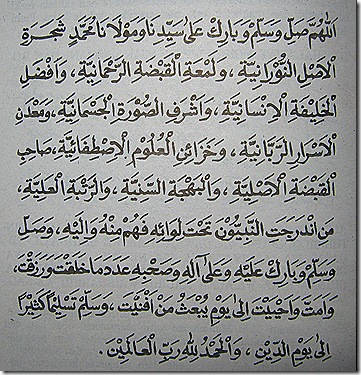 اَللّٰهُمَّ صَلِّ وَسَلِّمْ وَبَارِكْ عَلٰى سَيِّدِنَا وَمَوْلَانَا مُحَمَّدٍ شَجَرَةِ
الْاَصْلِ النُّوْرَانِيَّةِ ، وَلَمْعَةِ الْقَبْضَةِ الرَّحْمَانِيَّةِ ، وَاَفْضَلِ
الْخَلِيْقَةِ الْاِنْسَانِيَّةِ ، وَاَشْرَفِ الصُّوْرَةِ الْجِسْمَانِيَّةِ ، وَمَعْدِنِ
الْاَسْرَارِ الرَّبَّانِيَّةِ ، وَخَزَائِنِ الْعُلُوْمِ الْاِصْطِفَائِيَّةِ ، صَاحِبِ
الْقَبْضَةِ الْاَصْلِيَّةِ ، وَالْبَهْجَةِ السَّنِيَّةِ ، وَالرُّتْبَةِ الْعَلِيَّةِ ،
مَنِ انْدَرَجَتِ النَّبِيُّوْنَ تَحْتَ لِوَائِهِ فَهُمْ مِنْهُ وَاِلَيْهِ ، وَصَلِّ
وَسَلِّمْ وَبَارِكْ عَلَيْهِ وَعَلٰى اٰلِهِ وَصَحْبِهِ عَدَدَ مَا خَلَقْتَ وَرَزَقْتَ ،
وَاَمَتَّ وَاَحْيَيْتَ اِلٰى يَوْمِ يُبْعَثُ مَنْ اَفْنَيْتَ ، وَسَلِّمْ تَسْلِيْمًا كَثِيْرًا
اِلٰى يَوْمِ الدِّيْنِ ، وَالْحَمْدُ لِلّٰهِ رَبِّ الْعَالَمِيْنَ .